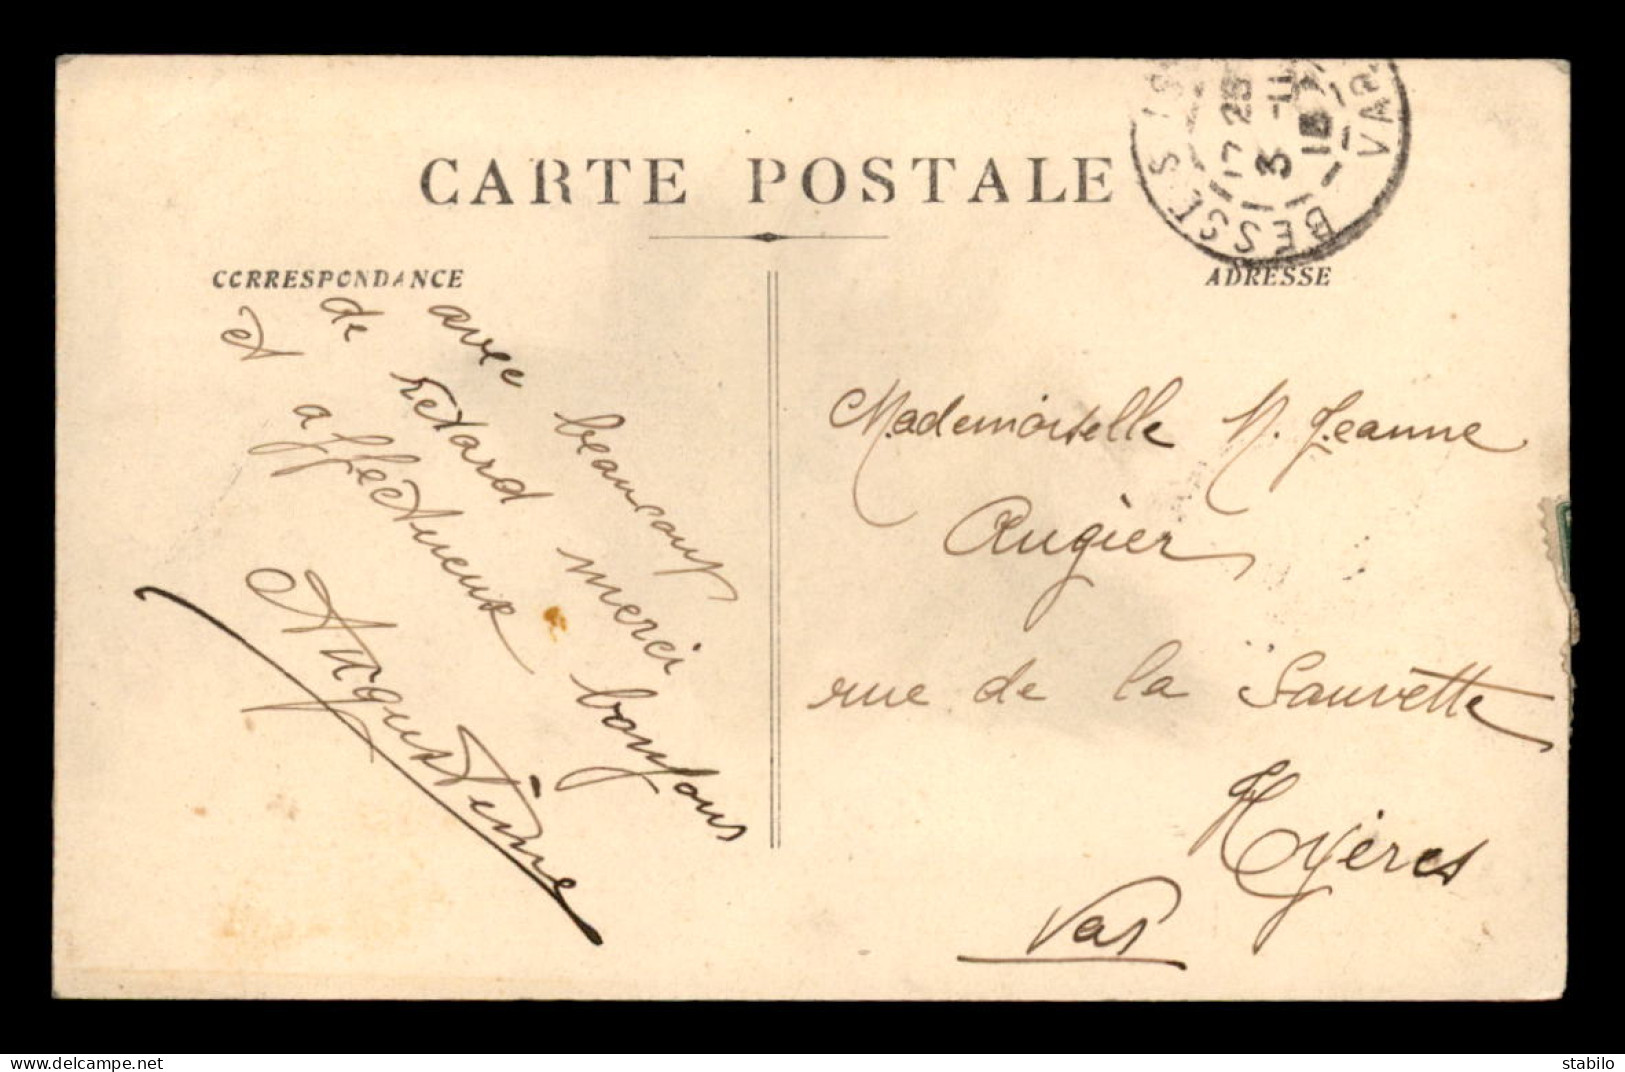 CARTE POSTALE
CORRESPONDANCE
avec beaucoup
de retard merci
et affectueux bonjour
Augustine
ADRESSE
Mademoiselle M. Jeanne
Augier
rue de la Sauvette
Hyères
Var
BESSE S ISS
17 25
3 -11
VAR
stabilo
Delcampe.net